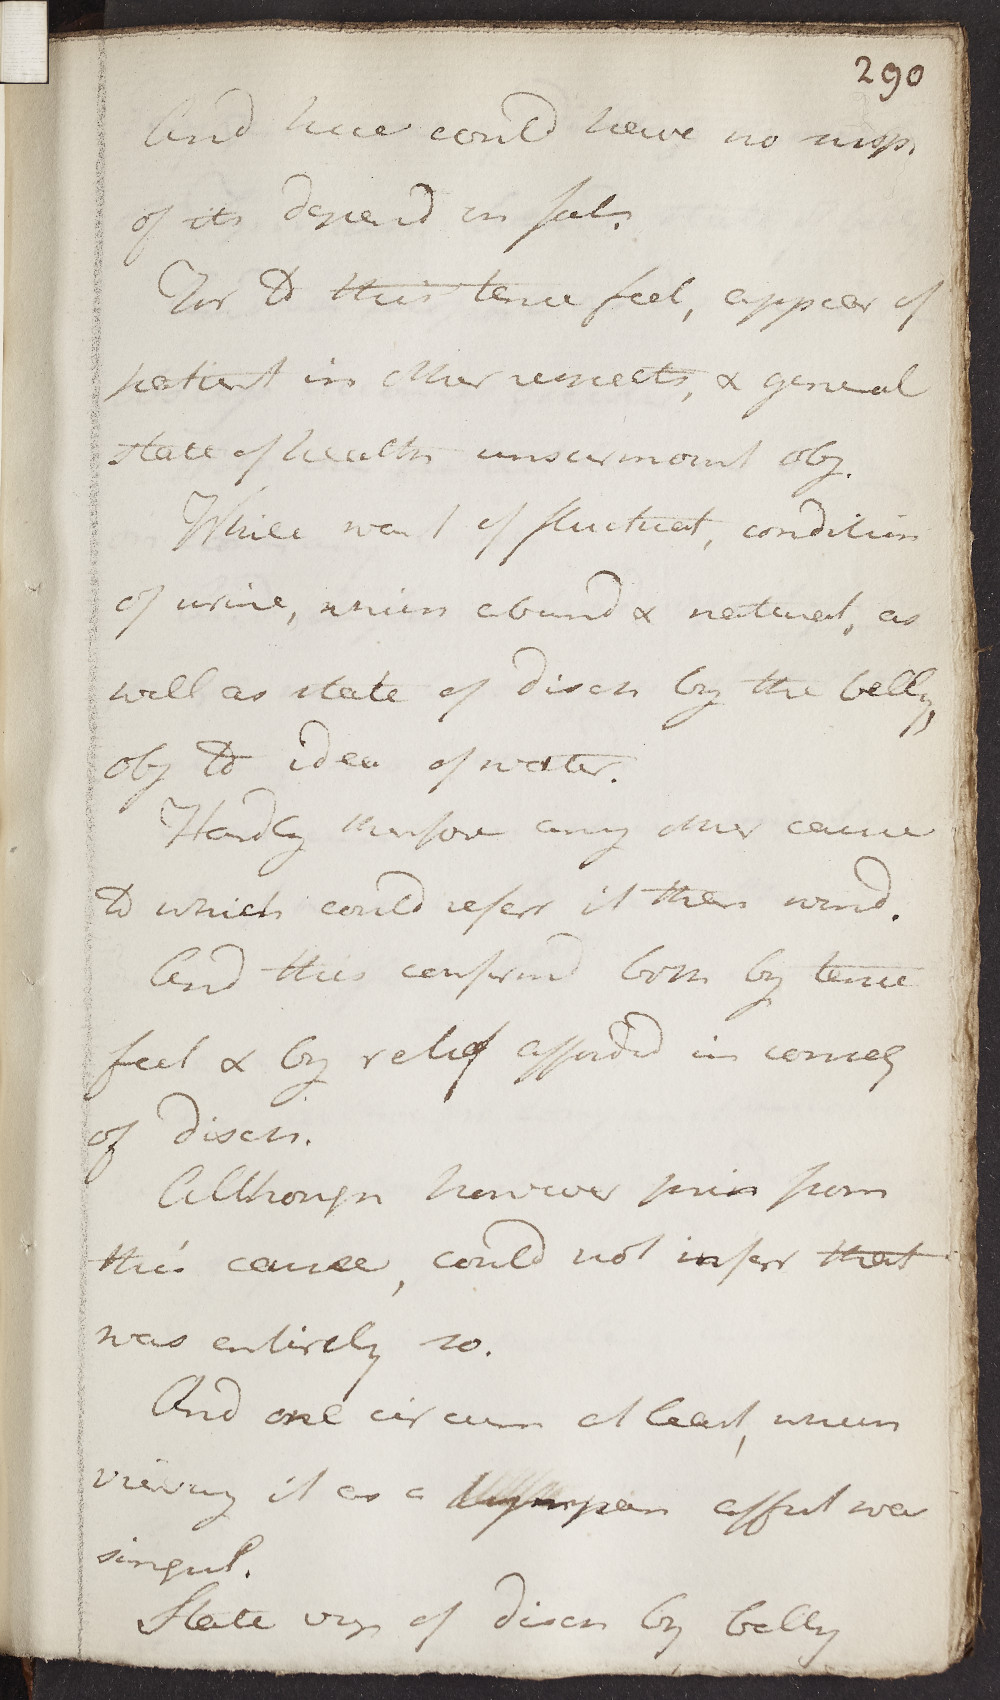 290
And here could have no susp.
of its depend on fat.
For to this tense feel, appear of
patient in other respects, & general
state of health unsurmount obj.
While want of fluctuat, condition
of urine, which abund & natural, as
well as state of disch by the belly,
obj to idea of water.
Hardly therefore any other cause
to which could refer it than wind.
And this confirmd both by tense
feel & by relief affordd in conseq
of disch.
Although however prin from
this cause, could not infer that
was entirely so.
And one circum at least, when
viewing it as a tympan affect was
singul.
State viz of disch by belly